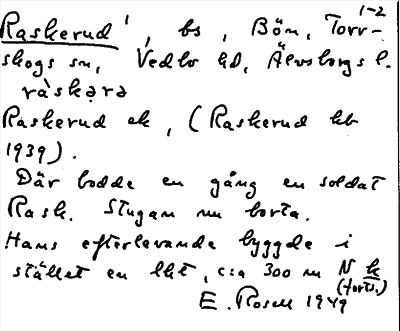 1-2
Raskerud ¹, bs, Bön, Torr-
skogs sn, Vedbo hd, Älvsborgs l.
ràskərə
Raskerud ek, (Raskerud kb
1939).
Där bodde en gång en soldat
Rask. Stugan nu borta.
Hans efterlevande byggde i
stället en lht, c:a 300 m N h
(forts.)
E. Rosell 1949